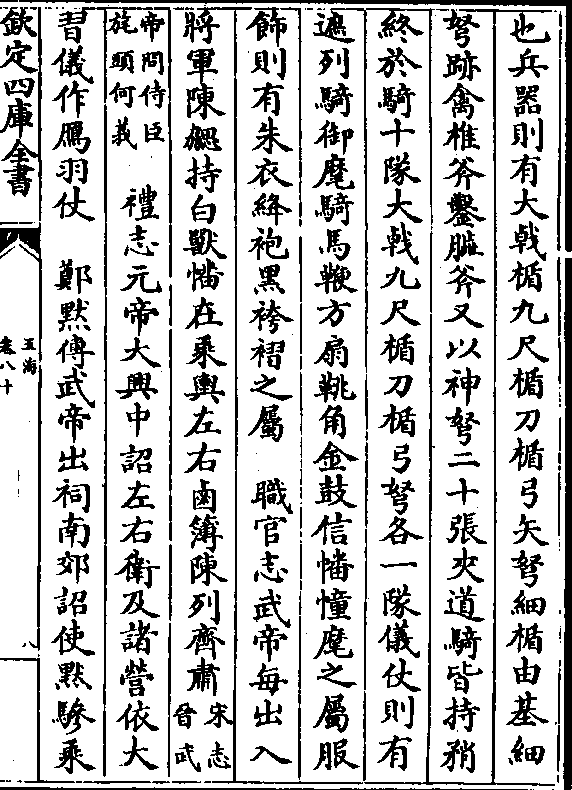 也兵器則有大戟楯九尺楯刀楯弓矢弩細楯由基細
弩跡禽椎斧鑿腦斧又以神弩二十張夾道騎皆持矟
終於騎十隊大戟九尺楯刀楯弓弩各一隊儀仗則有
遮列騎御麾騎馬鞭方扇鞉角金鼓信幡幢麾之屬服
飾則有朱衣絳袍黒袴褶之屬　職官志武帝每出入
將軍陳勰持白獸幡在乘輿左右鹵簿陳列齊肅宋志晉武
帝問侍臣旄頭何義　禮志元帝大興中詔左右衛及諸營依大
習儀作鴈羽仗　鄭默傳武帝出祠南郊詔使默驂乘
欽定四庫全書
玉海
卷八十
八